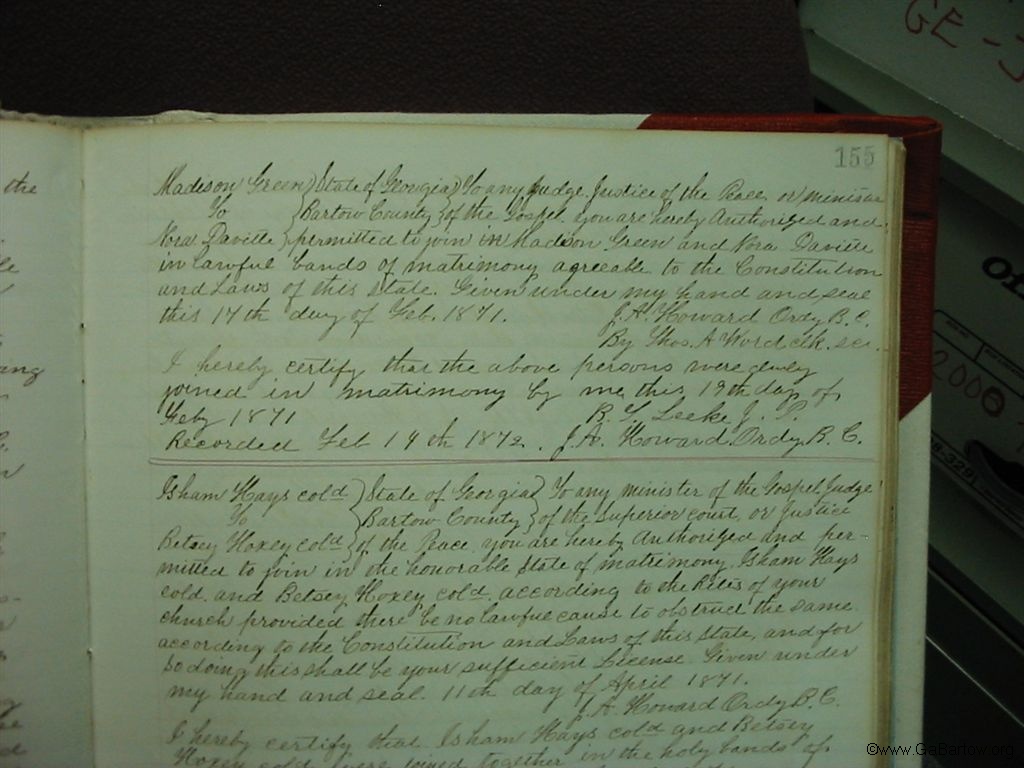 GE -J
155
Madison Green } State of Georgia } To any Judge, Justice of the Peace, or minister
To } Bartow County } of the Gospel you are hereby Authorized and
Nora Daville } permitted to join in Madison Green and Nora Daville
in lawful bands of matrimony agreeable to the Constitution
and Laws of this State. Given under my hand and seal
this 17th day of Feb. 1871. J. A. Howard Ordy B. C.
By Thos. A Word clk.
I hereby certify that the above persons were duly
joined in matrimony by me this 19th day of
Feby 1871 B. F. Leeke J. P.
Recorded Feb 14th 1872. J. A. Howard Ordy B. C.
Isham Hays cold } State of Georgia } To any minister of the Gospel, Judge
To } Bartow County } of the Superior court, or Justice
Betsey Hoxey cold } of the Peace, you are hereby Authorized and per
mitted to join in the honorable State of matrimony, Isham Hays
cold. and Betsey Hoxey cold. according to the Rites of your
church provided there be no lawful cause to obstruct the same
according to the Constitution and Laws of this State, and for
so doing this shall be your sufficient License. Given under
my hand and seal. 11th day of April 1871.
J. A. Howard Ordy B. C.
I hereby certify that Isham Hays cold and Betsey
Hoxey cold were joined together in the holy bands of
the
ing
2006
©www.GaBartow.org